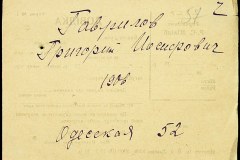 2
Гаврилов
Григорий Иосифович
1908
Одесская 52